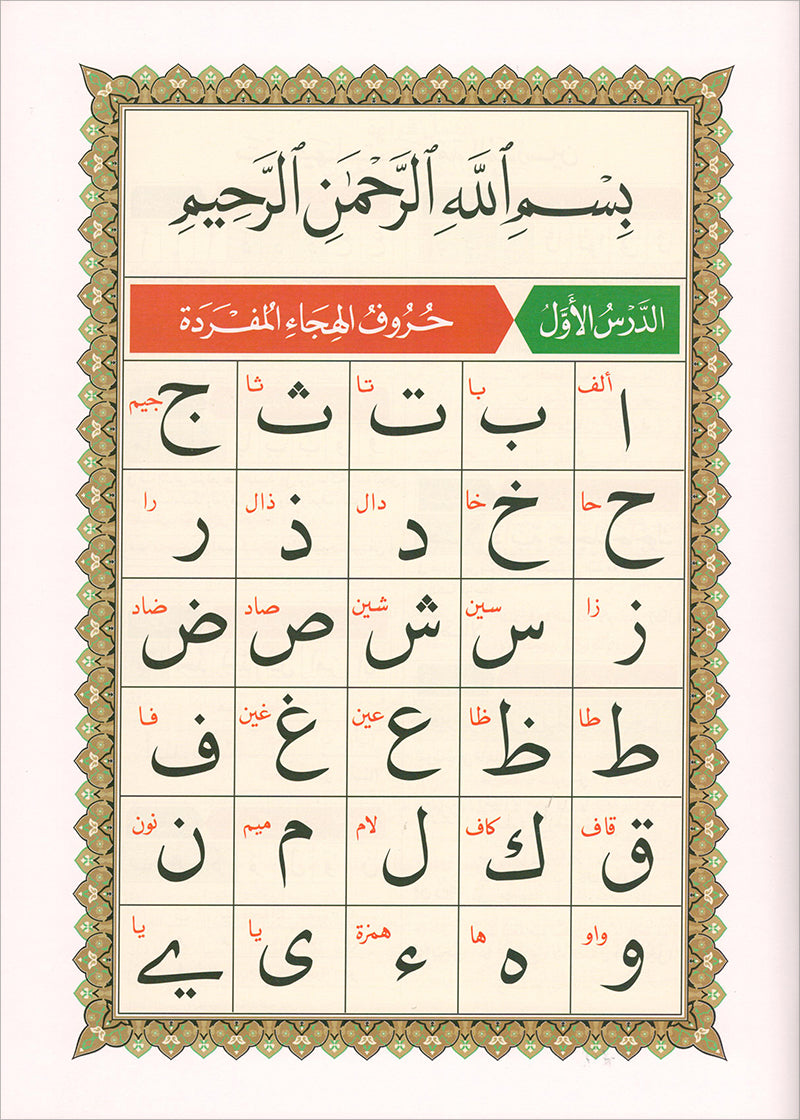 بِسْمِ ٱللَّهِ ٱلرَّحْمَٰنِ ٱلرَّحِيمِ
الدَّرْسُ الأَوَّلُ حُرُوفُ الهِجَاءِ المُفْرَدَة
ألف ا با ب تا ت ثا ث جيم ج
حا ح خا خ دال د ذال ذ را ر
زا ز سين س شين ش صاد ص ضاد ض
طا ط ظا ظ عين ع غين غ فا ف
قاف ق كاف ك لام ل ميم م نون ن
واو و ها ه همزة ء يا ى يا ے